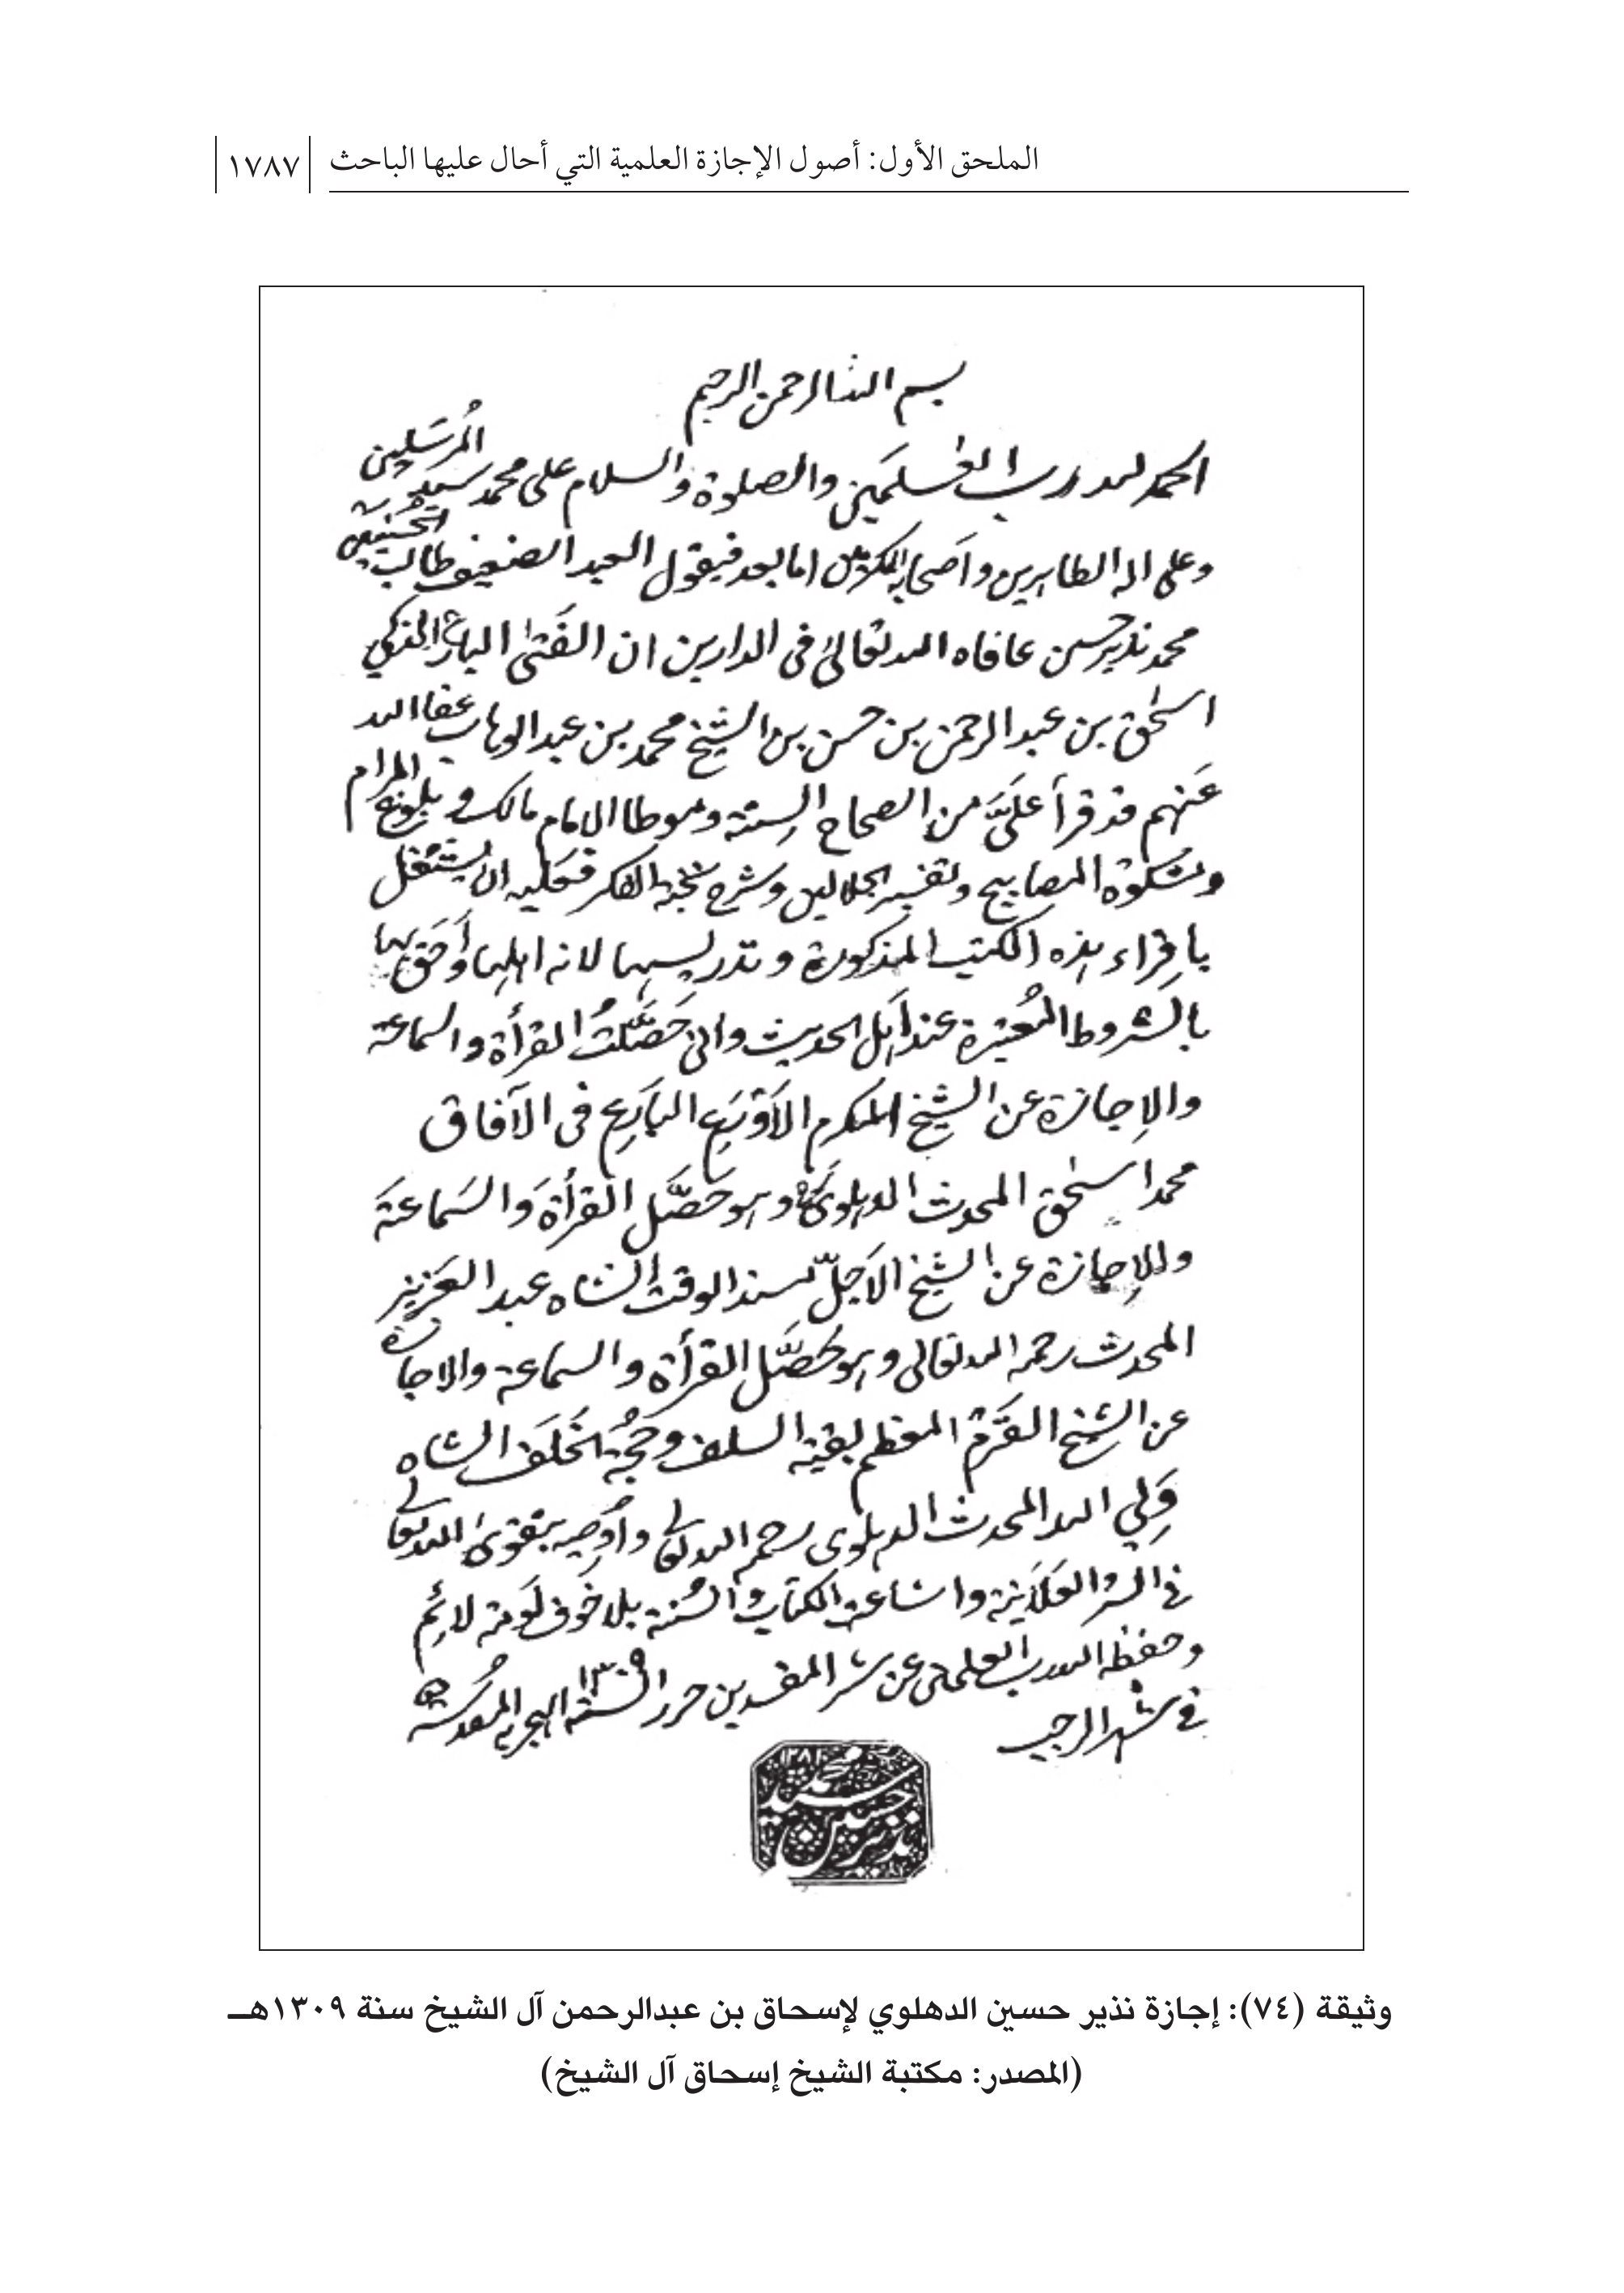 الملحق الأول: أصول الإجازة العلمية التي أحال عليها الباحث
١٧٨٧
بسم الله الرحمن الرحيم
الحمد لله رب العلمين والصلوة والسلام على محمد سيد المرسلين
وعلى اله الطاهرين واصحابه المكرمين اما بعد فيقول العبد الضعيف طالب الحسنيين
محمد نذير حسين عافاه الله تعالى في الدارين ان الفتى البارع الذكي
اسحق بن عبد الرحمن بن حسن بن الشيخ محمد بن عبد الوهاب عفا الله
عنهم قد قرأ علَيَّ من الصحاح الستة وموطا الامام مالك وبلوغ المرام
ومشكوة المصابيح وتفسير الجلالين وشرح نخبة الفكر فعليه ان يشتغل
باقراء هذه الكتب المذكورة وتدريسها لانه اهلها وأحق بها
بالشروط المعتبرة عند أهل الحديث واني حصّلت القرأة والسماعة
والاجازة عن الشيخ المكرم الأورع البارع في الآفاق
محمد اسحق المحدث الدهلوي وهو حصّل القرأة والسماعة
والاجازة عن الشيخ الاجلّ مسند الوقت الشاه عبد العزيز
المحدث رحمه الله تعالى وهو حصّل القرأة والسماعة والاجازة
عن الشيخ القرم المعظم بقية السلف وحجة الخلف الشاه
ولي الله المحدث الدهلوي رحمه الله تعالى وأوصيه بتقوى الله تعالى
في السر والعلانية واشاعة الكتاب والسنة بلا خوف لومة لائم
وحفظه الله رب العلمين عن شر المفسدين حرر السنة ١٣٠٩ الهجرية المقدسة
في شهر الرجب
١٢٨١
سيد محمد نذير حسين
وثيقة (٧٤): إجازة نذير حسين الدهلوي لإسحاق بن عبدالرحمن آل الشيخ سنة ١٣٠٩هـ
(المصدر: مكتبة الشيخ إسحاق آل الشيخ)